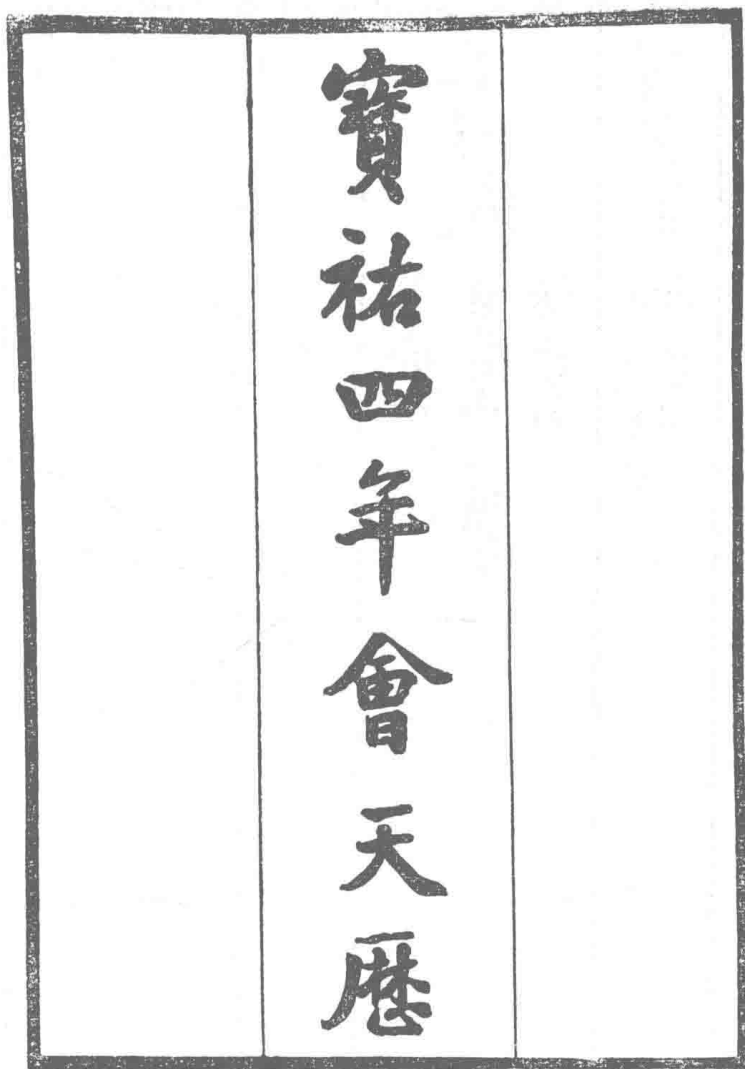 寶祐四年會天厯